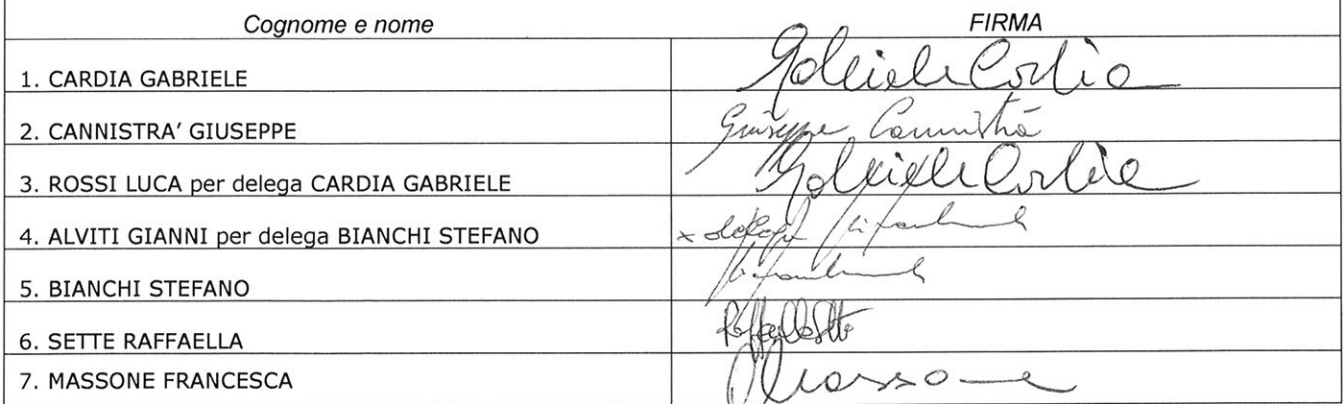 Cognome e nome FIRMA
1. CARDIA GABRIELE Gabriele Cardia
2. CANNISTRA' GIUSEPPE Giuseppe Cannistrà
3. ROSSI LUCA per delega CARDIA GABRIELE Gabriele Cardia
4. ALVITI GIANNI per delega BIANCHI STEFANO x delega
5. BIANCHI STEFANO
6. SETTE RAFFAELLA Raffaella Sette
7. MASSONE FRANCESCA Massone